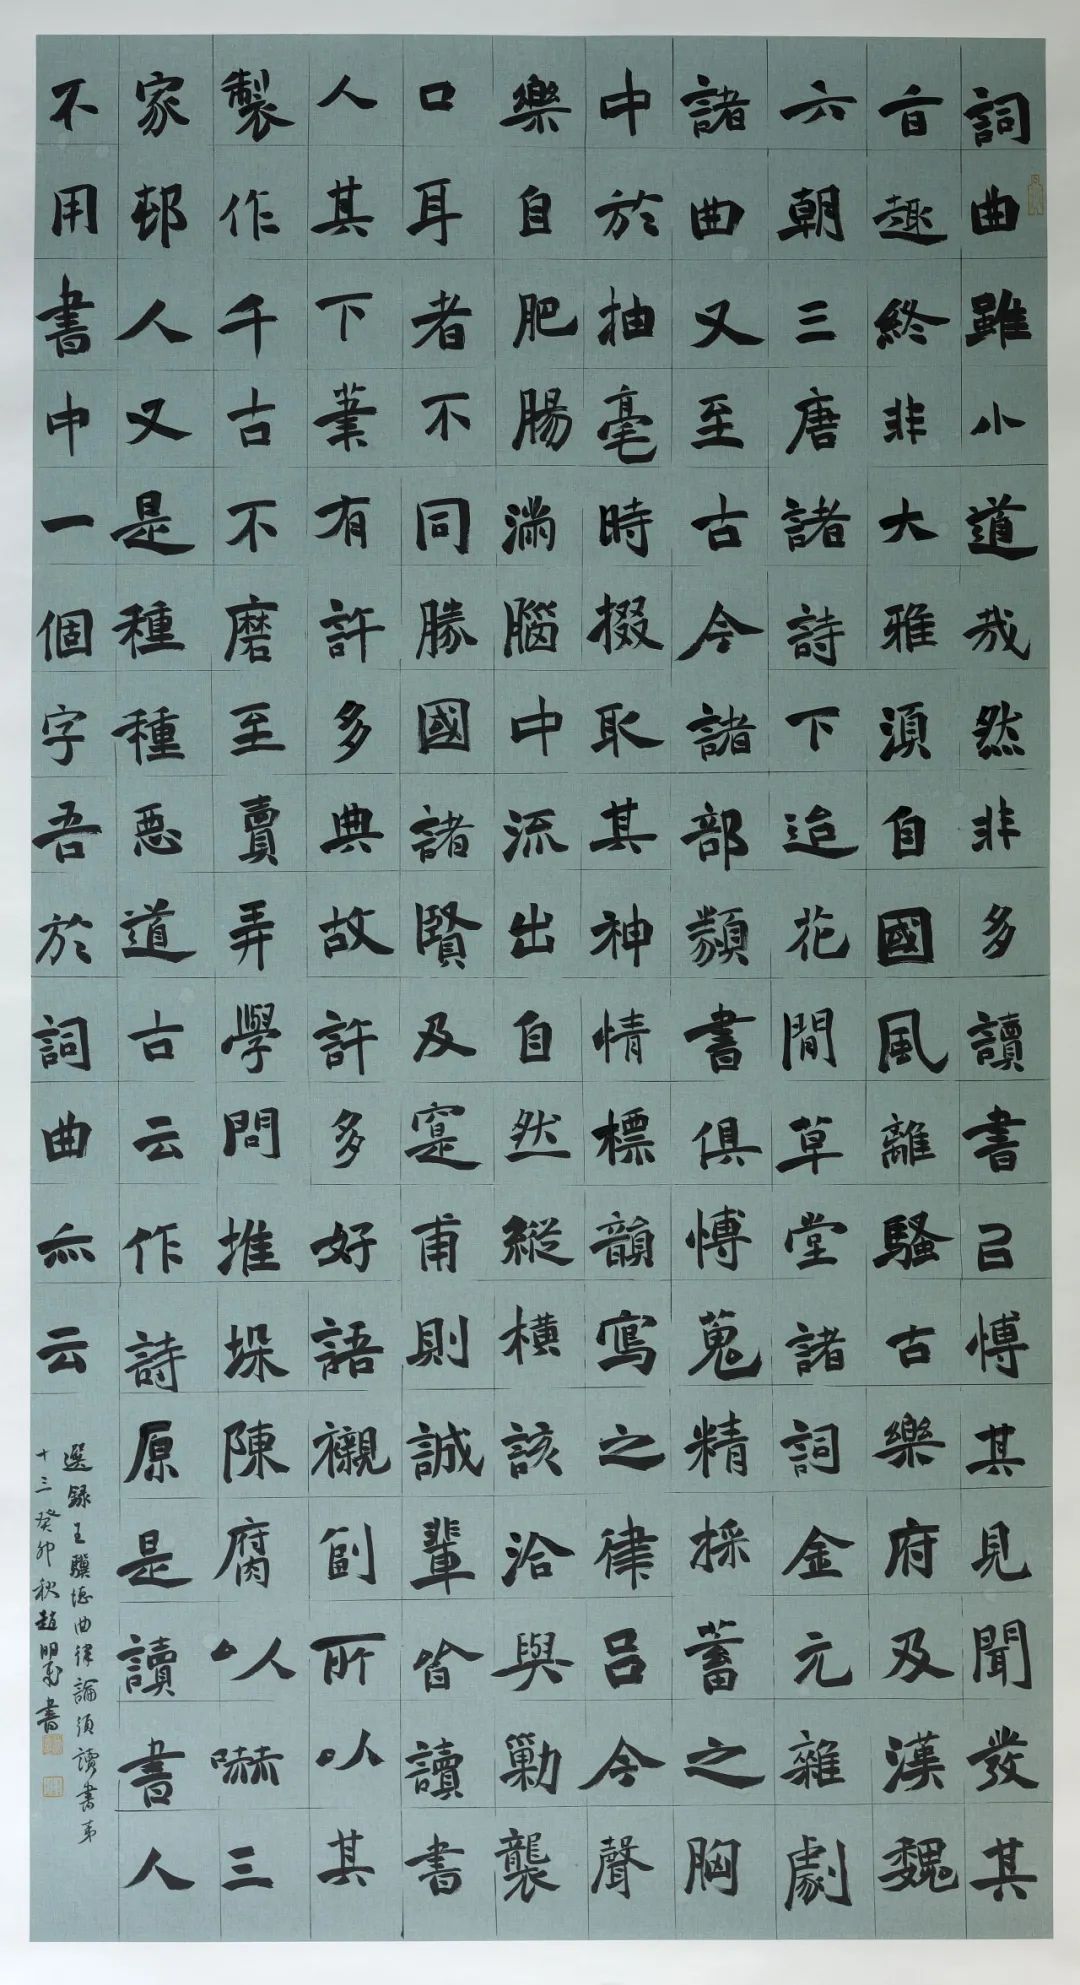 詞曲雖小道哉然非多讀書已博其見聞發其
旨趣終非大雅須自國風離騷古樂府及漢魏
六朝三唐諸詩下迨花間草堂諸詞金元雜劇
諸曲又至古今諸部類書俱博蒐精採蓄之胸
中於抽毫時掇取其神情標韻寫之律呂今聲
樂自肥腸滿腦中流出自然縱橫該洽與勦襲
口耳者不同勝國諸賢及寔甫則誠輩皆讀書
人其下筆有許多典故許多好語襯副所以其
製作千古不磨至賣弄學問堆垛陳腐以嚇三
家邨人又是種種惡道古云作詩原是讀書人
不用書中一個字吾於詞曲亦云
選錄王驥德曲律論須讀書第
十三癸卯秋趙明 書